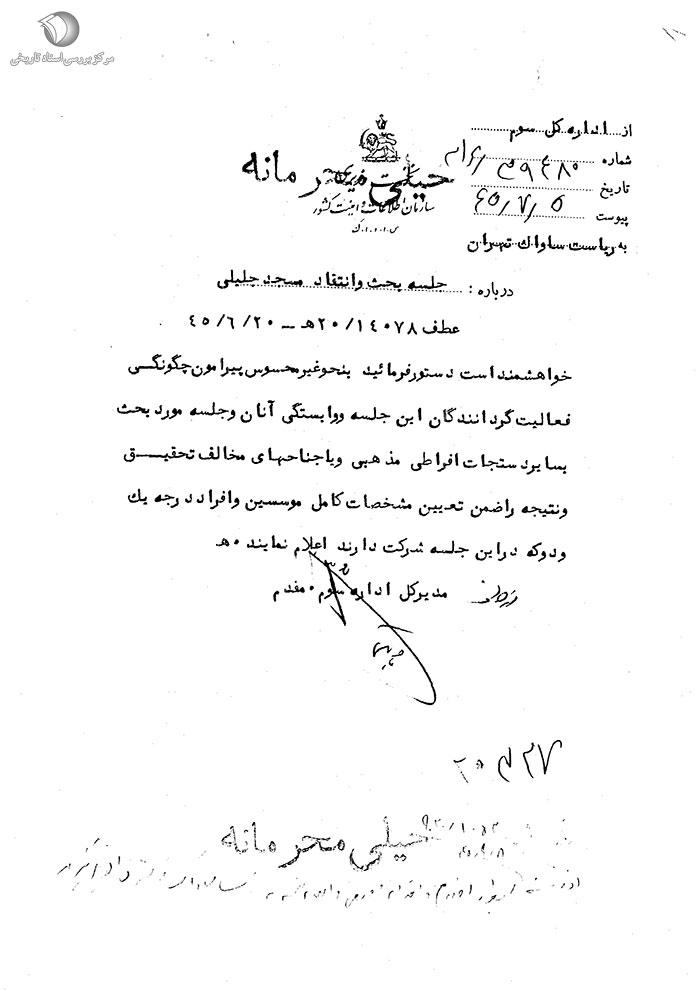 مرکز بررسی اسناد تاریخی
از اداره کل سوم
شماره
تاریخ
پیوست ۴۵/۷/۵
خیلی محرمانه
سازمان اطلاعات و امنیت کشور
س.ا.و.ا.ک
به ریاست ساواک تهران
درباره: جلسه بحث و انتقاد مسجد جلیلی
عطف ۲۰/۱۴۰۷۸هـ – ۴۵/۶/۲۰
خواهشمند است دستور فرمائید بنحو غیر محسوس پیرامون چگونگی
فعالیت گردانندگان این جلسه ووابستگی آنان وجلسه مورد بحث
بسایر دستجات افراطی مذهبی ویا جناحهای مخالف تحقیق
ونتیجه را ضمن تعیین مشخصات کامل موسسین وافراد درجه یك
ودوکه دراین جلسه شرکت دارند اعلام نمایند ۰هـ
مدیرکل اداره سوم ۰ مقدم
خیلی محرمانه